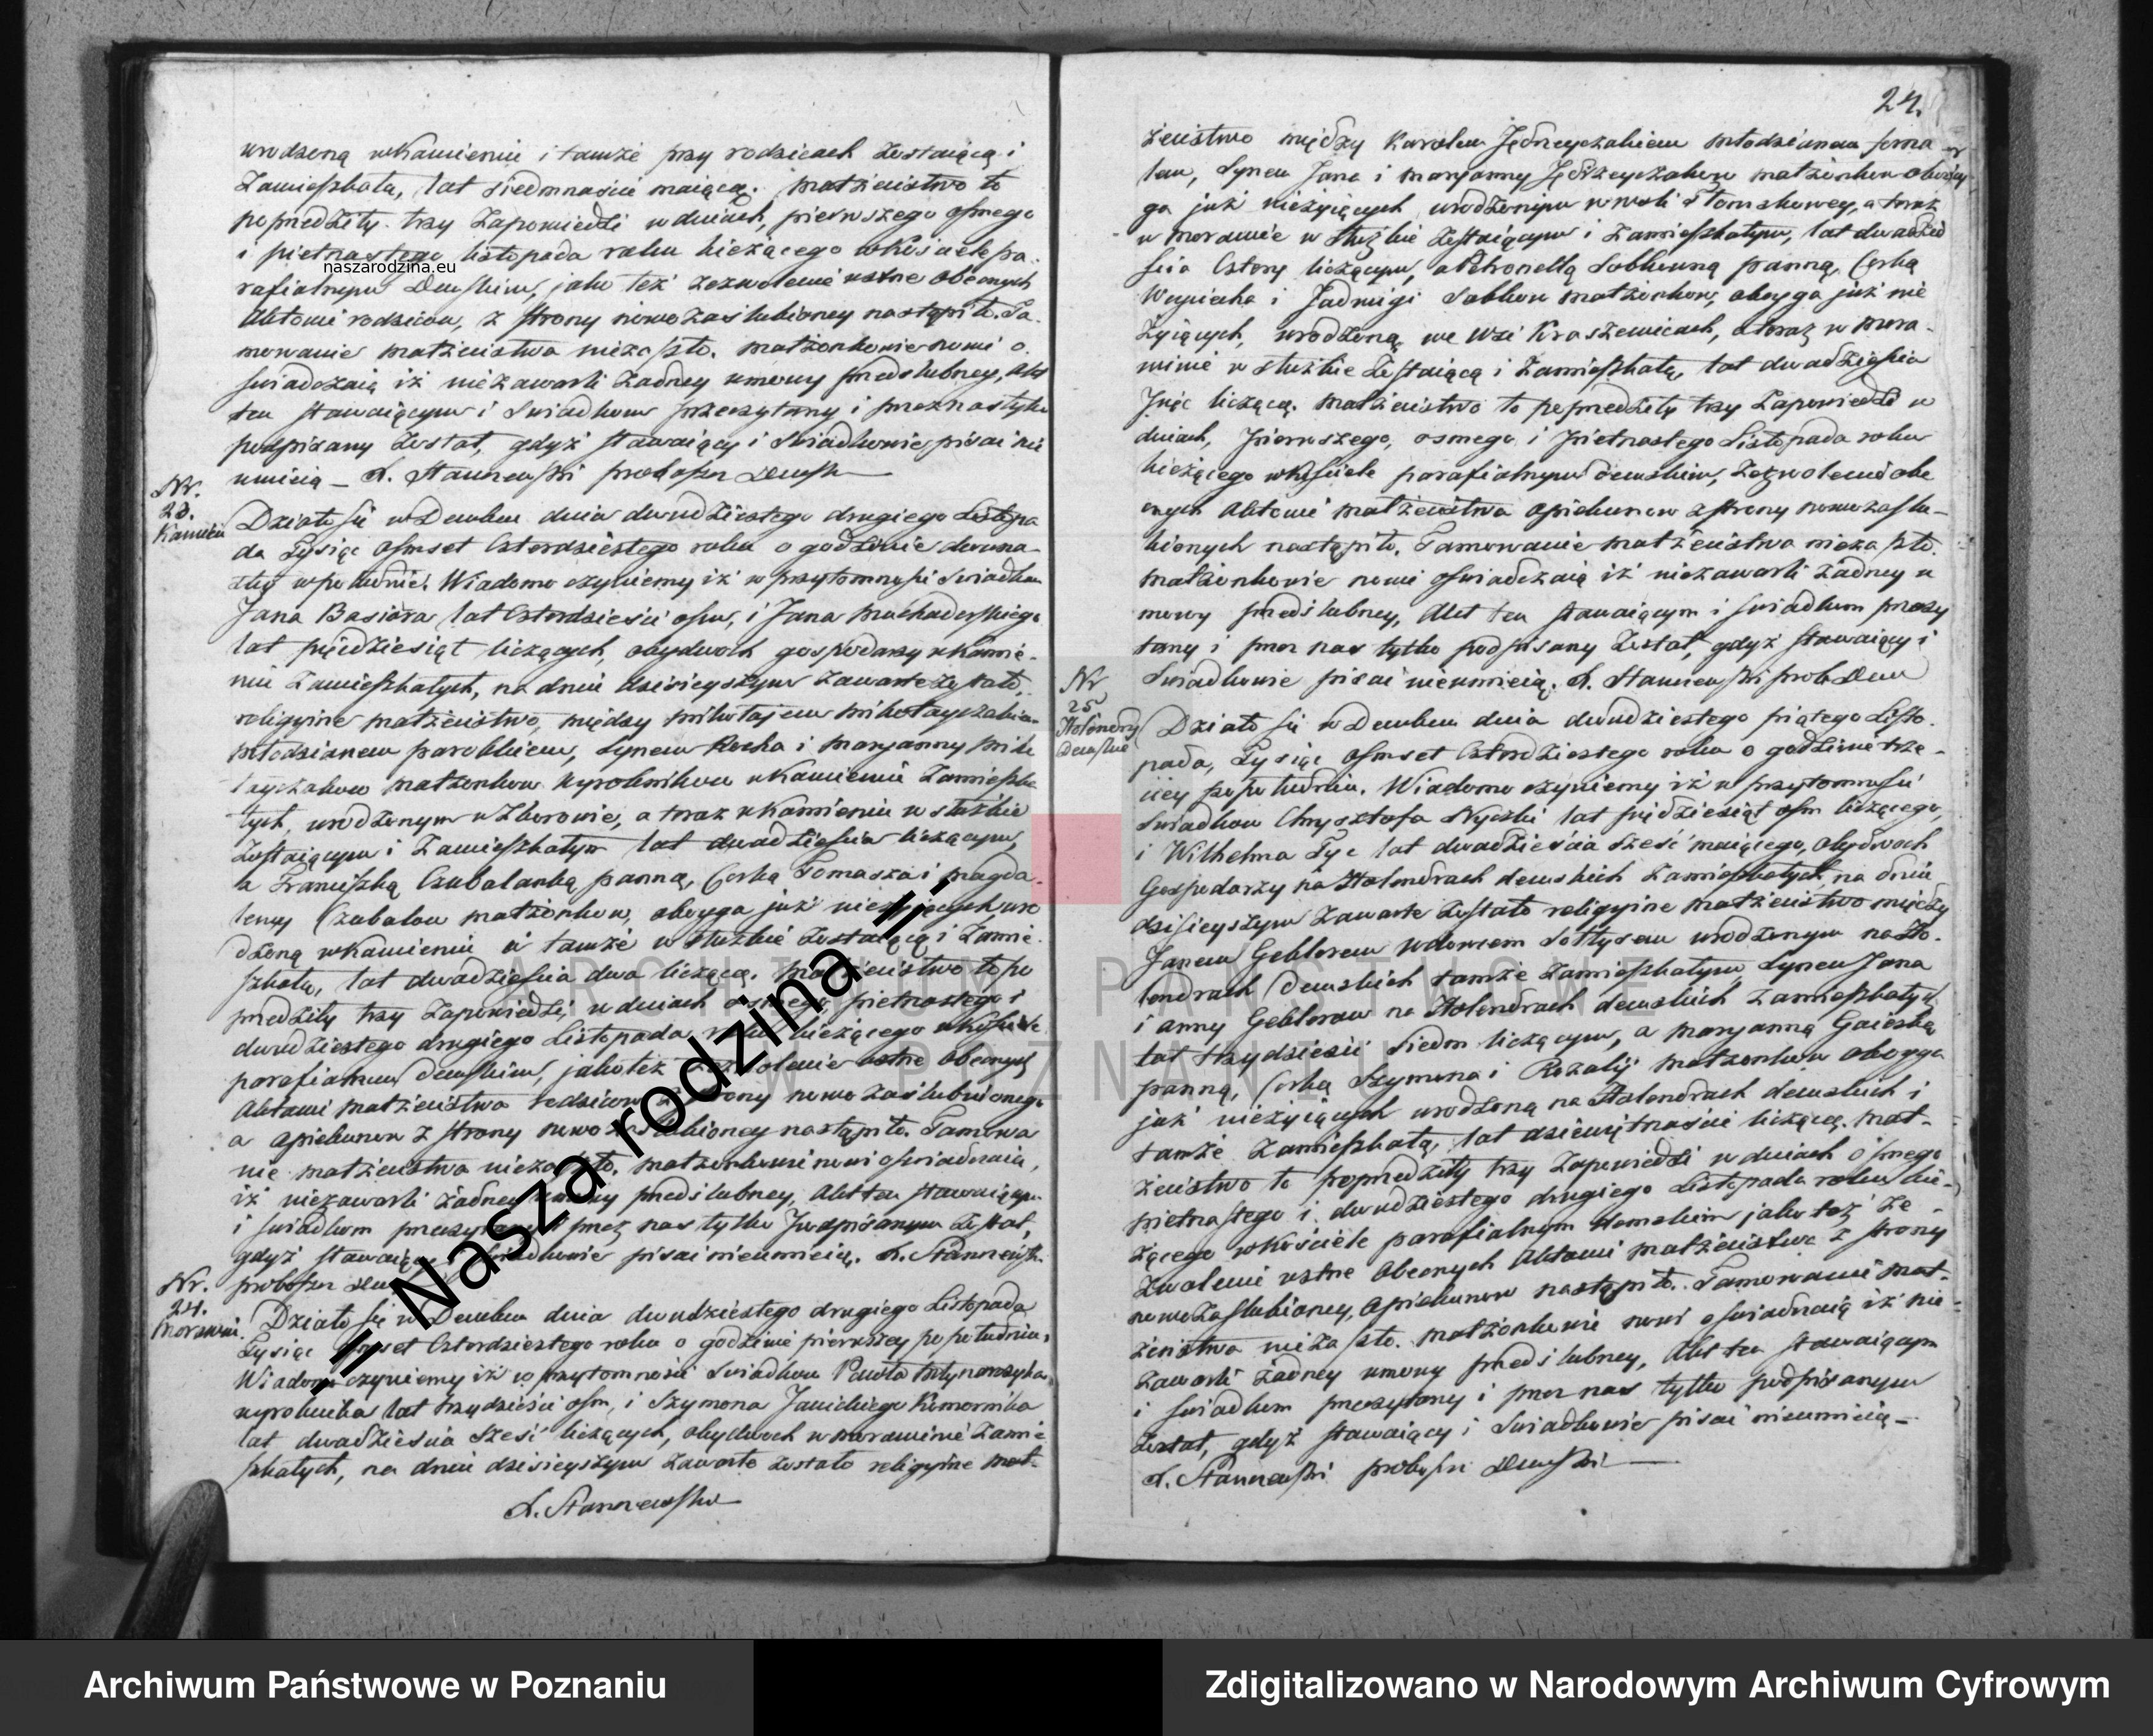 urodzoną w Kamieniu i tamże przy rodzicach zostaiącą i
zamieszkałą, lat siedmnaście maiącą. małżeństwo to
poprzedziły trzy zapowiedzi w dniach, pierwszego osmego
i pietnastego listopada roku bieżącego w kościele pa-
rafialnym Dembskim, jako też zezwolenie ustne obecnych
Aktowi rodziców, z strony nowozaślubioney nastąpiło. Ta-
mowanie małżeństwa nieza szło. małżonkowie nowi o
świadczaią iż niezawarli żadney umowy przedślubney, Akt
ten stawaiącym i świadkom przeczytany i przez nas tylko
podpisany został, gdyż stawaiący i świadkowie pisać nie
umieią _
Nr.
23.
Kamień
Działo się w Dembem dnia dwudziestego drugiego Listopa
da Tysiąc osmset czterdziestego roku o godzinie dwuna-
stey w południe. Wiadomo czyniemy iż w przytomności świadków
Jana Basiora lat czterdzieści osm, i Jana
lat pięćdziesiąt liczących, obydwoch gospodarzy w Kamie-
niu zamieszkałych, na dniu dzisieyszym zawarte zostało
religiyne małżeństwo, między Mikołajem Mikołayczakiem
młodzianem parobkiem, synem Rocha i Maryanny Miko
łayczaków małżonków wyrobników w Kamieniu zamieszka
łych, urodzonym w Zborowie, a teraz w Kamieniu w służbie
zostaiącym i zamieszkałym lat dwadzieścia liczącym,
a Franciszką Czabalanką panną, córką Tomasza i Magda-
leny Czabalów małżonków, oboyga już nieżyiących, uro
dzoną w Kamieniu i tamże w służbie zostaiącą i zamie-
szkałą, lat dwadzieścia dwa liczącą. małżeństwo to po
przedziły trzy zapowiedzi, w dniach osmego pietnastego i
dwudziestego drugiego Listopada roku bieżącego w kościele
parafialnym Dembskim, jako też zezwolenie ustne obecnych
Aktowi małżeństwa rodziców z strony nowozaślubionego
a opiekunów z strony nowozaślubioney nastąpiło. Tamowa
nie małżeństwa nieza szło. małżonkowie nowi oświadczaią,
iż niezawarli żadney umowy przedślubney, Akt ten stawaiącym
i świadkom przeczytany i przez nas tylko podpisanym został,
gdyż stawaiący i świadkowie pisać nieumieią.
Nr.
24.
Morawin.
Działo się w Dembem dnia dwudziestego drugiego Listopada
Tysiąc osmset czterdziestego roku o godzinie pierwszey po południu,
Wiadomo czyniemy iż w przytomności świadków Pawła
wyrobnika lat trzydzieści osm, i Szymona Janickiego Komornika
lat dwadzieścia sześć liczących, obydwoch w Morawinie zamie
szkałych, na dniu dzisieyszym zawarte zostało religiyne mał-
24.
żeństwo między Karolem Jędrzeyczakiem młodzianem forna
lem, synem Jana i Maryanny Jędrzeyczaków małżonków oboy
ga już nieżyiących urodzonym w woli Tłomakowey, a teraz
w Morawinie w służbie zostaiącym i zamieszkałym, lat dwadzie
ścia cztery liczącym, a Petronellą Sobkową panną, córką
Woyciecha i Jadwigi Sobków małżonków, oboyga już nie
żyiących, urodzoną we wsi Kraszewicach, a teraz w Mora-
winie w służbie zostaiącą i zamieszkałą, lat dwadzieścia
liczącą. małżeństwo to poprzedziły trzy zapowiedzi w
dniach, pierwszego, osmego i pietnastego Listopada roku
bieżącego w kościele parafialnym Dembskim, zezwolenie obe
cnych Aktowi małżeństwa opiekunów z strony nowozaślu-
bionych nastąpiło. Tamowanie małżeństwa nieza szło.
małżonkowie nowi oświadczaią iż niezawarli żadney u
mowy przedślubney, Akt ten stawaiącym i świadkom przeczy
tany i przez nas tylko podpisany został, gdyż stawaiący i
świadkowie pisać nieumieią.
Nr
25
Holendry
Dembskie
Działo się w Dembem dnia dwudziestego piątego Listo-
pada, Tysiąc osmset czterdziestego roku o godzinie trze-
ciey po południu. Wiadomo czyniemy iż w przytomności
świadków Chrysztofa lat pięćdziesiąt osm liczącego,
i Wilhelma Tyc lat dwadzieścia sześć maiącego, obydwoch
Gospodarzy na Holendrach dembskich zamieszkałych, na dniu
dzisieyszym zawarte zostało religiyne małżeństwo między
Janem Geblerem wdowcem sołtysem urodzonym na Ho-
lendrach Dembskich tamże zamieszkałym, synem Jana
i Anny Geblerów na Holendrach dembskich zamieszkałych
lat trzydzieści siedm liczącym, a Maryanną Gaieską
panną, córką Szymona i Rozalij małżonków oboyga
już nieżyiących urodzoną na Holendrach dembskich i
tamże zamieszkałą, lat dziewiętnaście liczącą. mał-
żeństwo to poprzedziły trzy zapowiedzi w dniach osmego
pietnastego i dwudziestego drugiego Listopada roku bie-
żącego w kościele parafialnym Dembskim jako też ze-
zwolenie ustne obecnych Aktowi małżeństwa z strony
nowozaślubioney, opiekunów nastąpiło. Tamowanie mał-
żeństwa nieza szło. małżonkowie nowi oświadczaią iż nie-
zawarli żadney umowy przedślubney, Akt ten stawaiącym
i świadkom przeczytany i przez nas tylko podpisanym
został, gdyż stawaiący i świadkowie pisać nieumieią _
naszarodzina.eu
-= Nasza rodzina =-
ARCHIWUM PAŃSTWOWE
W POZNANIU
Archiwum Państwowe w Poznaniu
Zdigitalizowano w Narodowym Archiwum Cyfrowym